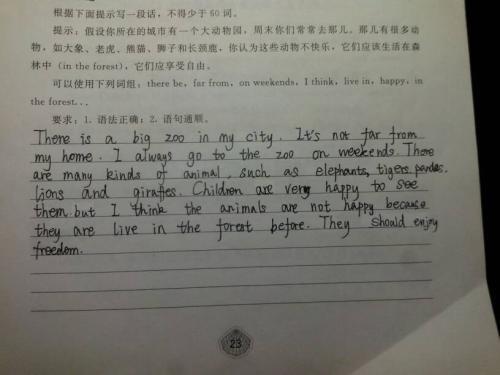 根据下面提示写一段话，不得少于 60 词。
提示：假设你所在的城市有一个大动物园，周末你们常常去那儿。那儿有很多动
物，如大象、老虎、熊猫、狮子和长颈鹿，你认为这些动物不快乐，它们应该生活在森
林中（in the forest），它们应享受自由。
可以使用下列词组：there be, far from, on weekends, I think, live in, happy, in
the forest...
要求：1. 语法正确；2. 语句通顺。
There is a big zoo in my city. It's not far from
my home. I always go to the zoo on weekends. There
are many kinds of animal, such as elephants, tigers, pandas,
lions and giraffes. Children are very happy to see
them. but I think the animals are not happy because
they are live in the forest before. They should enjoy
freedom.
23